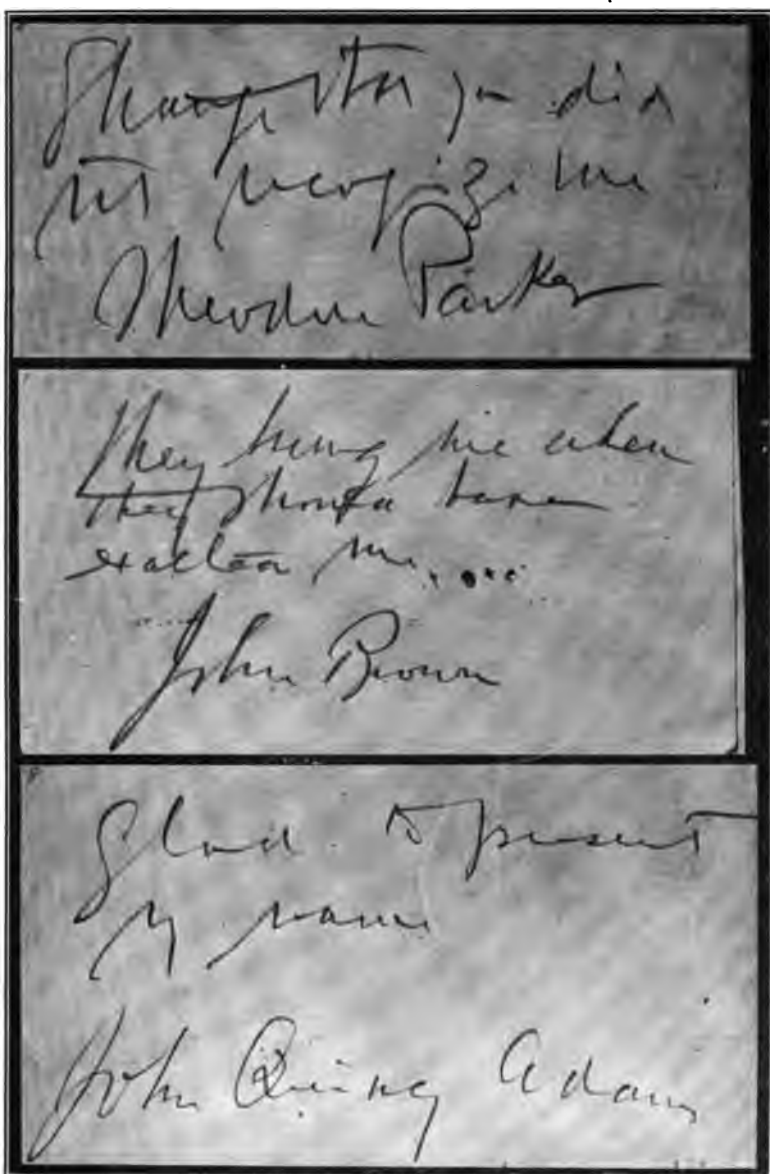 Strange that you did
not recognize me
Theodore Parker
They hung me when
they should have
exalted me....
John Brown
Glad to present
my name
John Quincy Adams